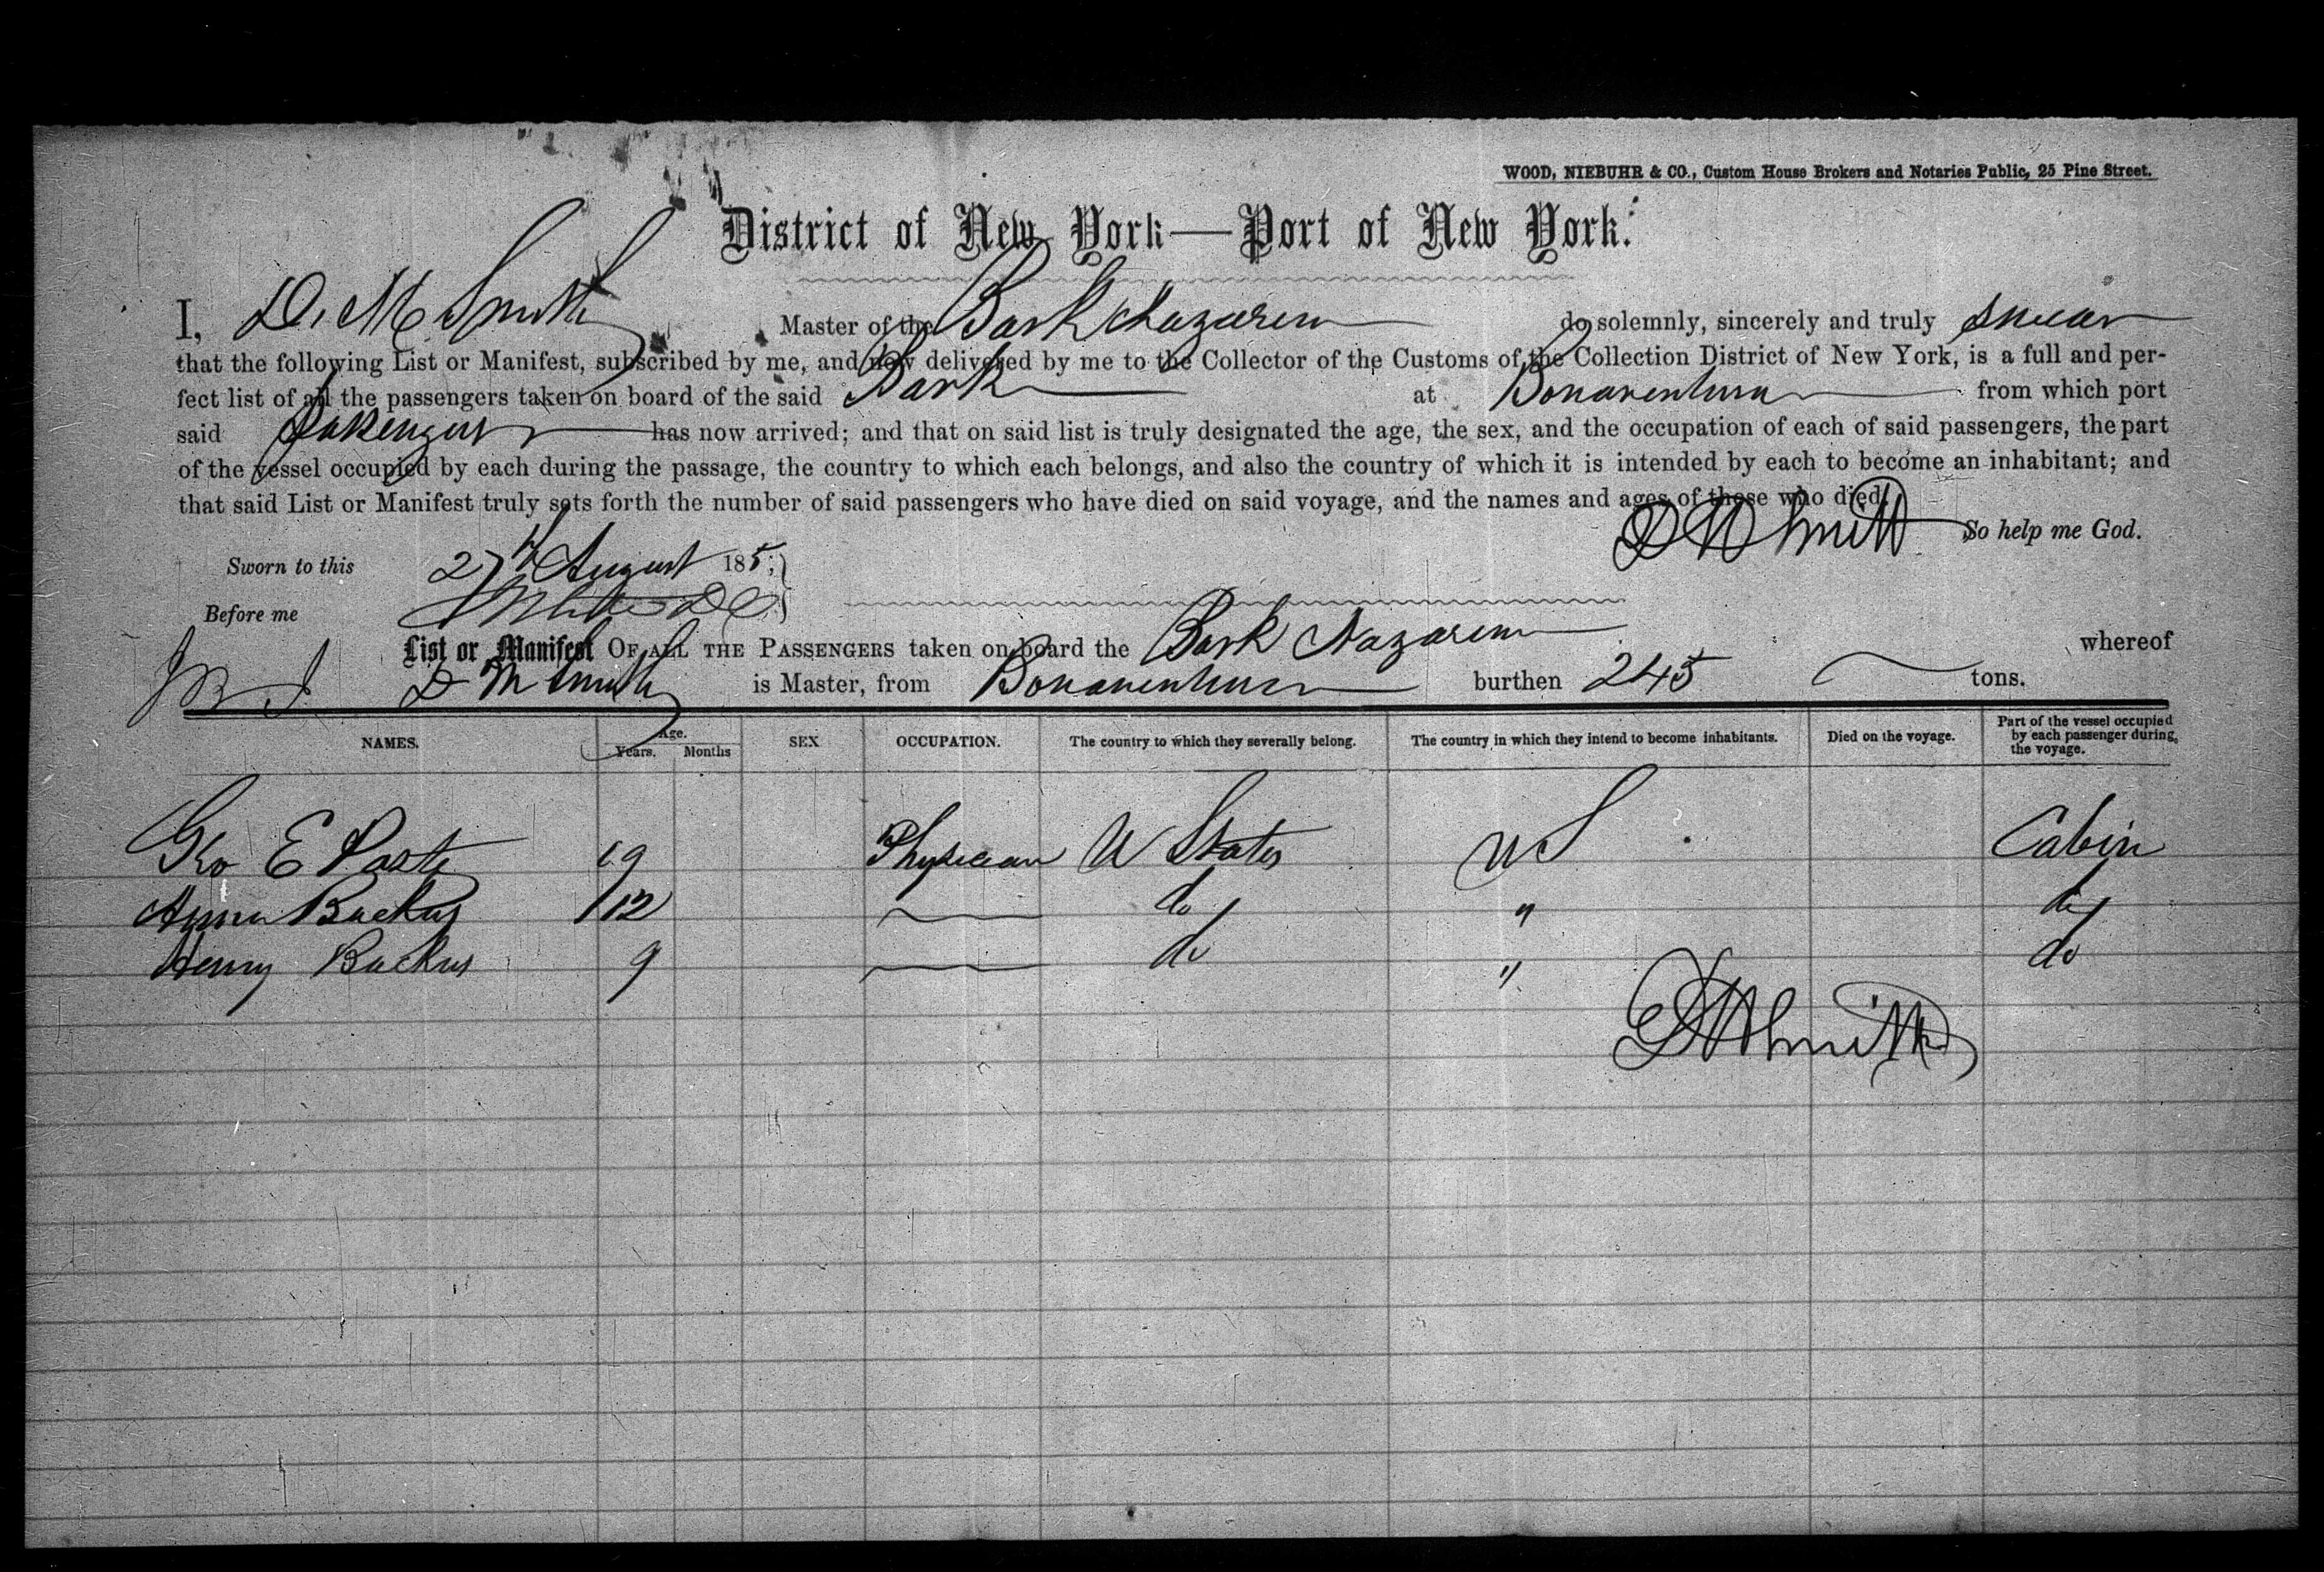 WOOD, NIEBUHR & CO., Custom House Brokers and Notaries Public, 25 Pine Street.
District of New York—Port of New York.
I, D. M Smith Master of the Bark Nazarene do solemnly, sincerely and truly swear
that the following List or Manifest, subscribed by me, and now delivered by me to the Collector of the Customs of the Collection District of New York, is a full and per-
fect list of all the passengers taken on board of the said Bark at Bonaventura from which port
said has now arrived; and that on said list is truly designated the age, the sex, and the occupation of each of said passengers, the part
of the vessel occupied by each during the passage, the country to which each belongs, and also the country of which it is intended by each to become an inhabitant; and
that said List or Manifest truly sets forth the number of said passengers who have died on said voyage, and the names and ages of those who died.
D M Smith So help me God.
Sworn to this 27th August 185
Before me
List or Manifest OF ALL THE PASSENGERS taken on board the Bark Nazarene whereof
D M Smith is Master, from Bonaventura burthen 245 tons.
NAMES. Age. Years. Months SEX OCCUPATION. The country to which they severally belong. The country in which they intend to become inhabitants. Died on the voyage. Part of the vessel occupied by each passenger during the voyage.
Geo E 19 Physician U States U S Cabin
Backus 12 do " do
Henry Backus 9 do " do
D M Smith